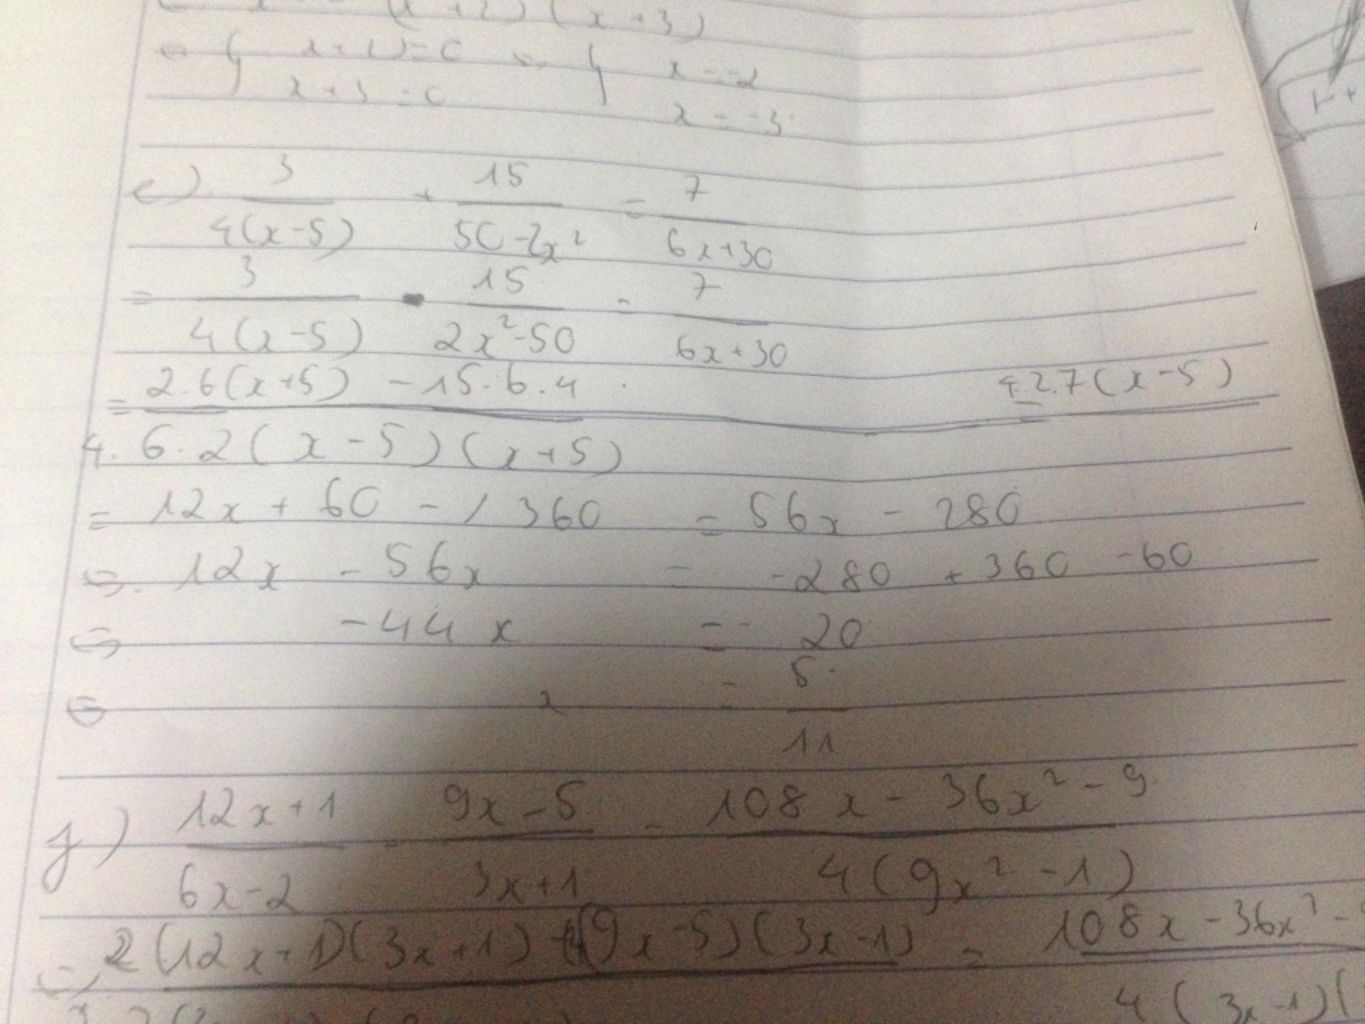 (x+2)(x+3)
x+2=0 x=-2
x+3=0 x=-3
e) 3/4(x-5) + 15/50-2x² = 7/6x+30
= 3/4(x-5) - 15/2x²-50 = 7/6x+30
= 2.6(x+5) - 15.6.4 4.2.7(x-5)
4.6.2(x-5)(x+5)
= 12x + 60 - 360 = 56x - 280
⇔ 12x - 56x = -280 + 360 - 60
⇔ -44x = - 20
⇔ x = 5/11
f) 12x+1/6x-2 - 9x-5/3x+1 = 108x - 36x² - 9/4(9x²-1)
2(12x+1)(3x+1) - 4(9x-5)(3x-1) = 108x - 36x² -
4(3x-1)(